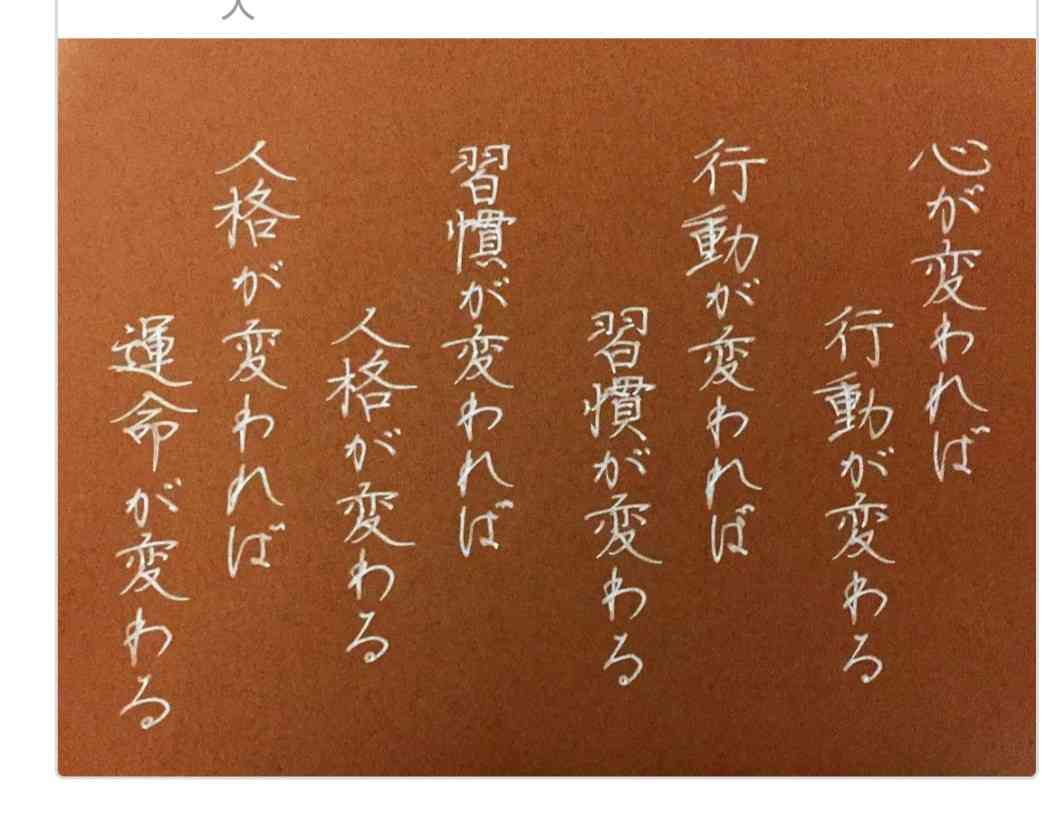 心が変われば
行動が変わる
行動が変われば
習慣が変わる
習慣が変われば
人格が変わる
人格が変われば
運命が変わる